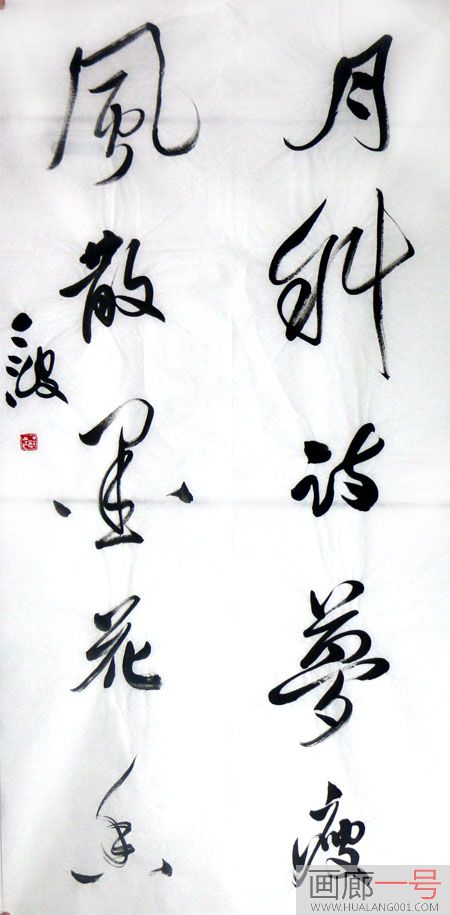 月斜诗夢瘦
風散墨花香
画廊一号
WWW.HUALANG001.COM